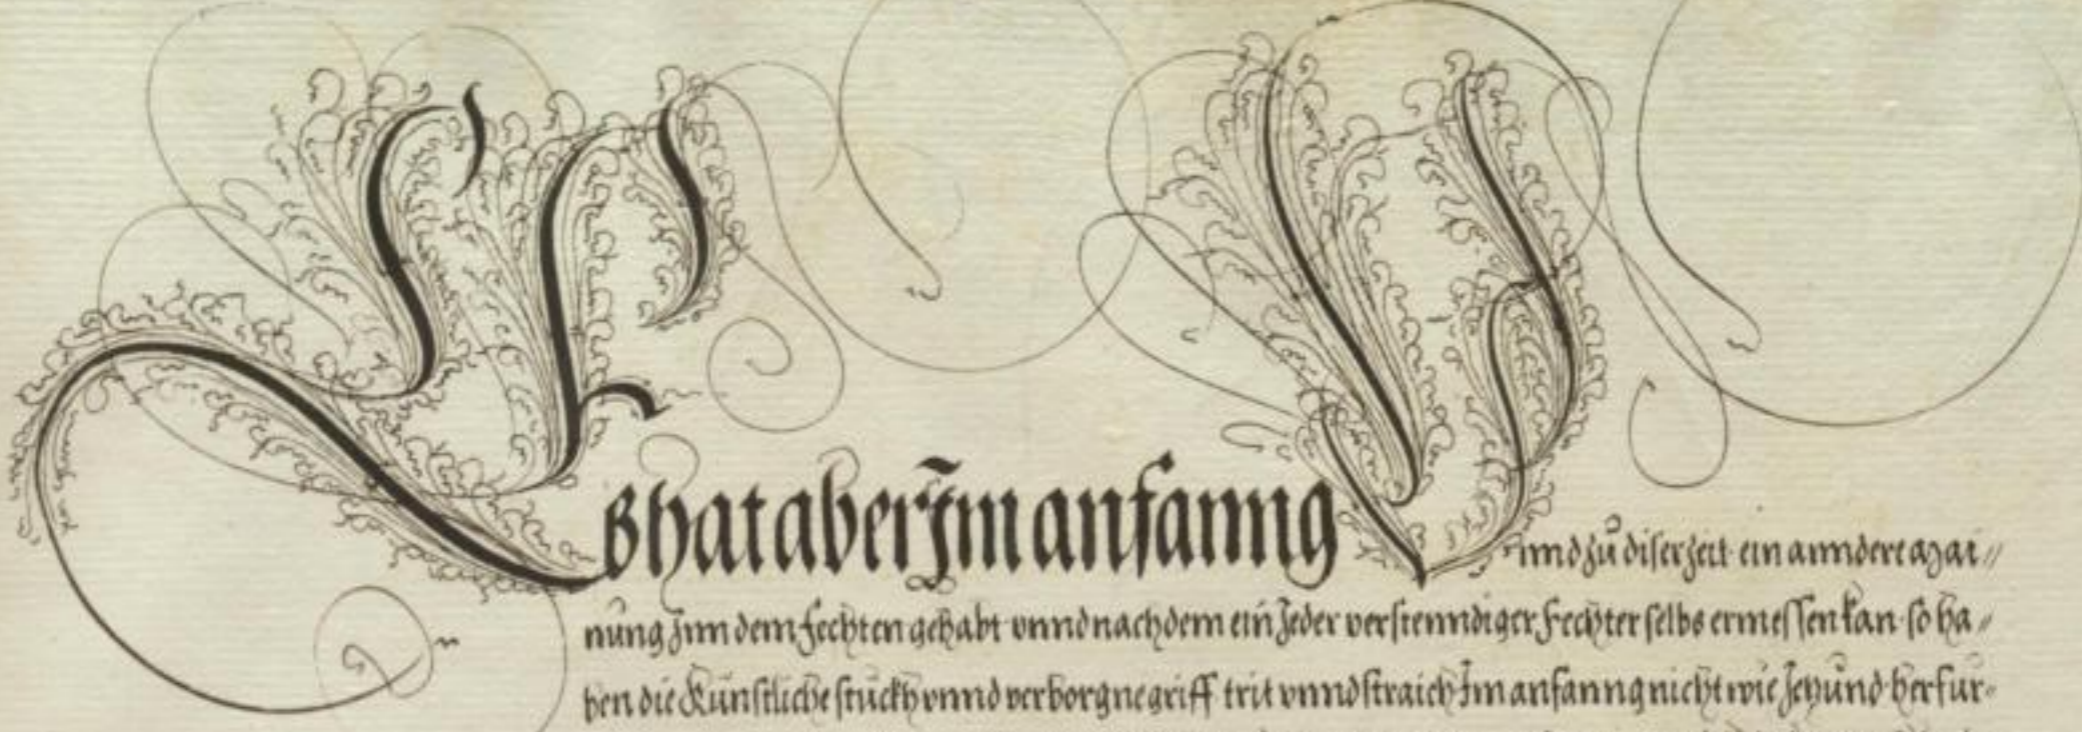 Es hat aber Im anfanng
Vnnd zů diser zeit ein anndere Mai//
nůng Jnn dem Fechten gehabt vnnd nach dem ein Jeder verstenndiger Fechter selbs ermessen kan so ha//
ben die Künstliche stuckh vnnd verborgne griff trit vnnd straich Im anfanng nicht wie Jetzůnd herfur//